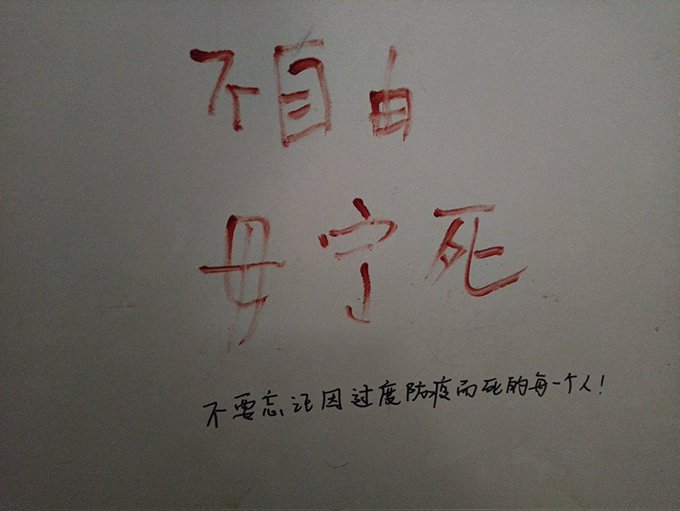 不自由
毋宁死
不要忘记因过度防疫而死的每一个人!